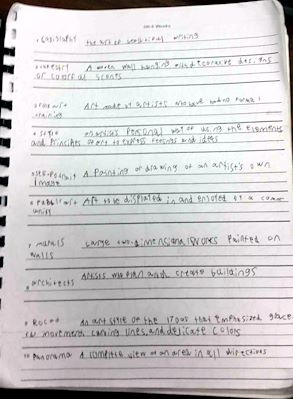 Calligraphy the art of beautiful writing
tapestry A woven wall hanging with decorative designs
or colorful scenes
Folk art Art made by artists who have had no formal
training
4 style an artist's personal way of using the elements
and principles of art to express feelings and ideas
self-portrait A Painting or drawing of an artist's own
image
6 Public art Art to be displayed in and enjoyed by a comm
unity
7 murals Large two-dimensional works painted on
walls
8 architects Artists who plan and create buildings
9 Rococo An art style of the 1700s that emphasized grace
ful movement, curving lines, and delicate colors
10 Panorama A complete view of an area in all directions